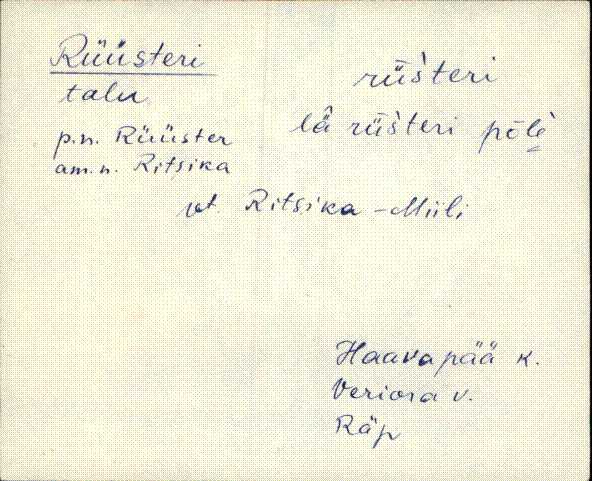 Rüüsteri
talu
p.n. Rüüster
am.n. Ritsika
rüšteri
lā rüšteri pōlè
vt. Ritsika-Miili
Haavapää k.
Veriora v.
Räp